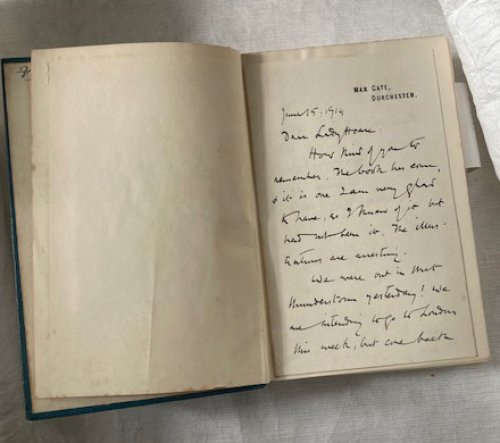 MAX GATE,
DORCHESTER.
June 15. 1914
Dear Lady Hoare:
How kind of you to
remember. The book has come,
& it is one I am very glad
to have, as I knew of it but
had not seen it. The illus-
trations are arresting.
We were out in that
thunderstorm yesterday! We
are intending to go to London
this week, but come back